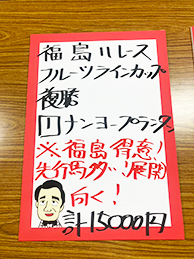 福島11レース
フルーツラインカップ
複勝
⑪ナンヨープランタン
※福島得意！
先行馬多い展開
向く！
計15000円